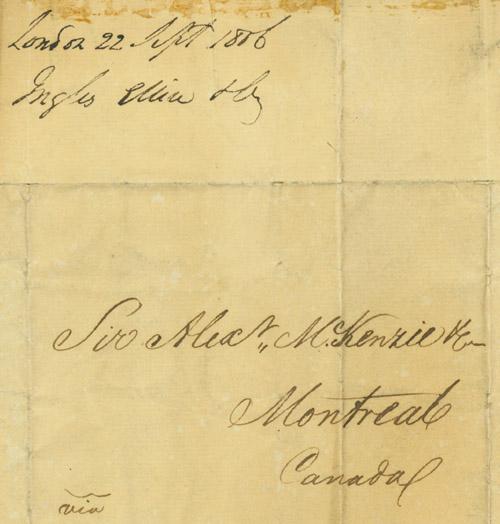 London 22 Sept 1806
Ingles Ellice & Co
Sir Alexr,, McKenzie & Co
Montreal
Canada
via